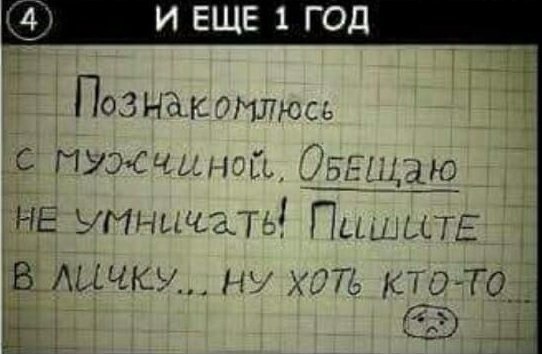 4 И ЕЩЕ 1 ГОД
Познакомлюсь
с мужчиной. Обещаю
не умничать! Пишите
в личку... ну хоть кто-то...